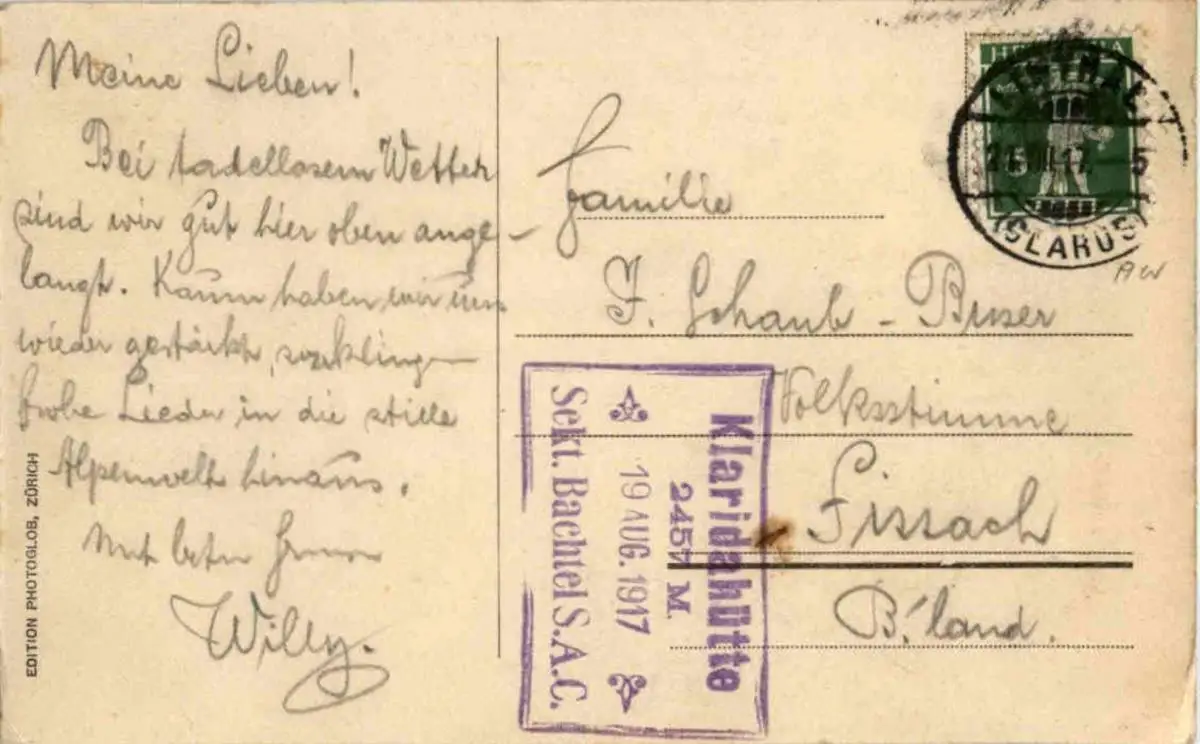 Meine Lieben!
Bei tadellosem Wetter
sind wir gut hier oben ange-
langt. Kaum haben wir uns
wieder gestärkt, erklingen
frohe Lieder in die stille
Alpenwelt hinaus.
Mit besten Grüssen
Willy.
EDITION PHOTOGLOB, ZÜRICH
HELVETIA
LINTHAL
21.VIII.17. 5
(GLARUS)
AW
Familie
J. Schaub-Buser
Volksstimme
Sissach
B'land.
Klaridahütte
2457 M.
19 AUG. 1917
Sekt. Bachtel S.A.C.